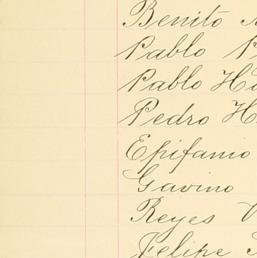 Benito
Pablo
Pablo
Pedro H
Epifanio
Gavino
Reyes
Felipe